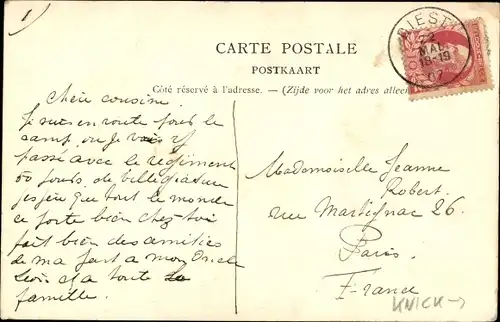 1
CARTE POSTALE
POSTKAART
Côté réservé à l'adresse. — (Zijde voor het adres alleen
DIEST
22
MAI
18-19
07
Chère cousine
Je suis en route pour le
camp ou je vais y
passé avec le régiment
jours de villégiature
j'espère que tout le monde
ce porte bien chez toi
fait bien des amitiés
de ma part a mon Oncle
et a toute la
famille.
Mademoiselle Jeanne
Robert.
rue Martignac 26.
Paris.
France
KNICK→